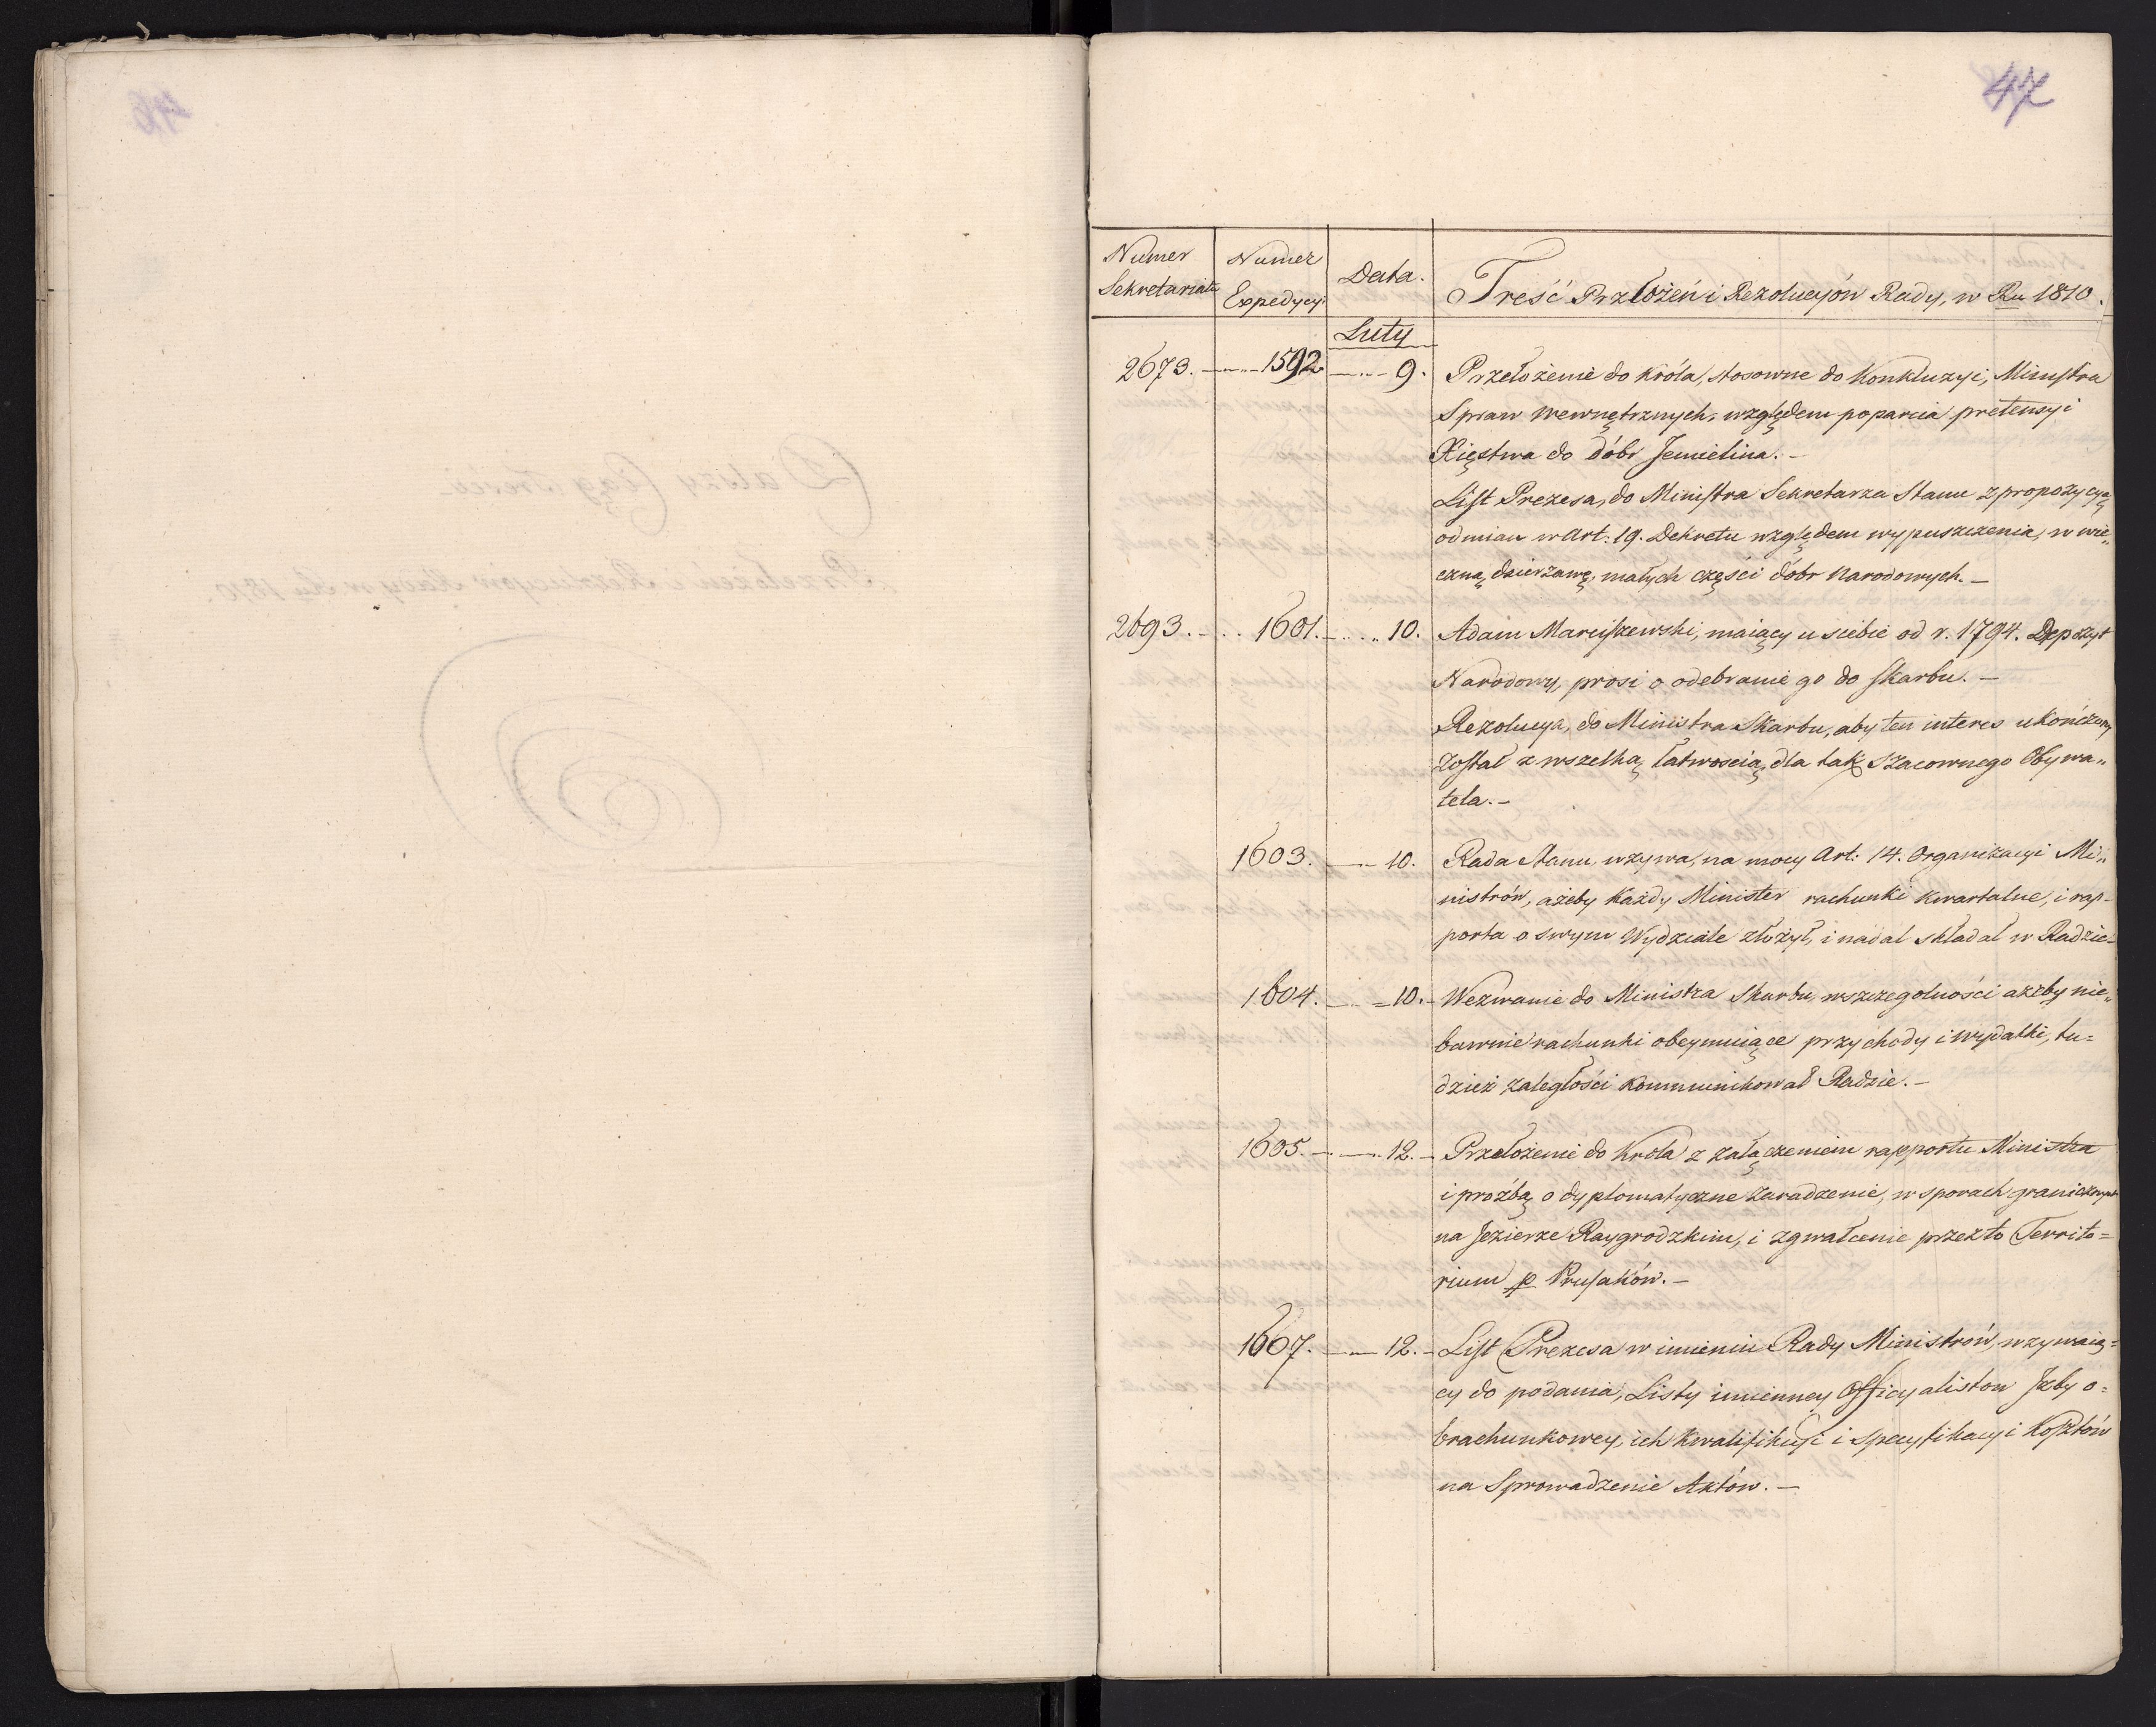 47
Numer Sekretariatu
Numer Expedycyi
Data.
Treść Przełożeń i Rezolucyjów Rady, w Ru 1810.
Luty
2673. 1592. 9. Przełożenie do Króla, stosowne do Konkluzyi, Ministra
Spraw wewnętrznych, względem poparcia pretensyi
Xięstwa do dóbr Jemielina. –
List Prezesa, do Ministra Sekretarza Stanu z propozycyą
odmian w Art: 19. Dekretu względem wypuszczenia, w wie„
czną dzierżawę, małych części dóbr Narodowych. –
2693. 1601. 10. Adam Marciszewski, maiący u siebie od r. 1794. Depozyt
Narodowy, prosi o odebranie go do skarbu. –
Rezolucya, do Ministra Skarbu, aby ten interes ukończony
został z wszelką łatwością, dla tak szacownego Obywa„
tela. –
1603. 10. Rada Stanu, wzywa, na mocy Art: 14. Organizacyi Mi„
nistrów, ażeby Każdy Minister rachunki kwartalne, i rap-
porta o swym Wydziale złożył, i nadal składał w Radzie –
1604. 10. – Wezwanie do Ministra Skarbu, wszczegolności ażeby nie„
bawnie rachunki obeymuiące przychody i wydatki, tu=
dzież zaległości kommunikował Radzie. –
1605. 12. – Przełożenie do Króla z załączeniem rapportu Ministra
i proźbą o dyplomatyczne zaradzenie, w sporach granicznych
na Jezierze Raygrodzkim, i zgwałcenie przezto Territo=
rium p Prusaków. –
1607. 12. – List Prezesa w imieniu Rady Ministrów, wzywaią=
cy do podania, Listy imienney Officyalistow Jzby o=
brachunkowey, ich Kwalifikacyi i specyfikacyi Kosztów
na Sprowadzenie Aktów. –